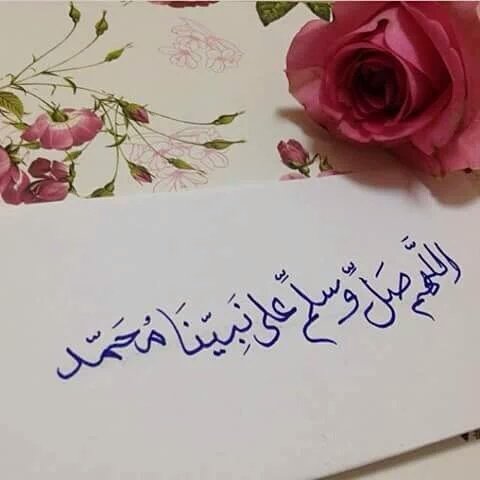 اللهمَّ صَل وِّسلم عَّلى نَبيّنَا مُحَمّد